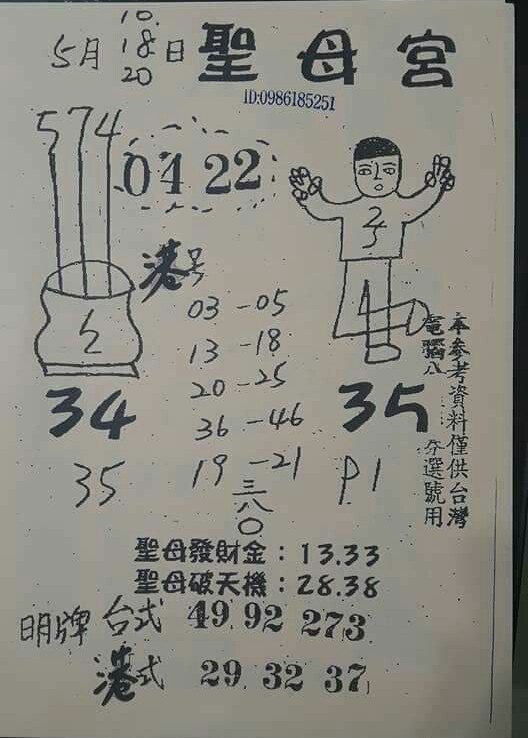 5月 10. 18 20 日 聖母宮
ID:0986185251
574
04 22
港号
03-05
13-18
20-25
36-46
19-21
三八〇
34
35
35
P1
聖母發財金：13.33
聖母破天機：28.38
明牌 台式 49 92 273
港式 29 32 37
本參考資料僅供台灣
電腦八 券選號用